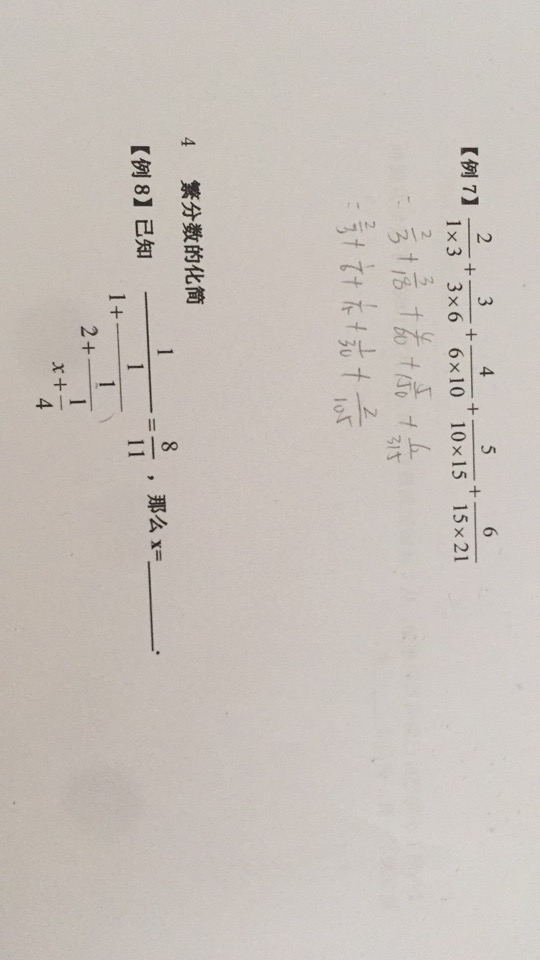 【例 7】 2/(1×3) + 3/(3×6) + 4/(6×10) + 5/(10×15) + 6/(15×21)
= 2/3 + 3/18 + 4/60 + 5/150 + 6/315
= 2/3 + 1/6 + 1/15 + 1/30 + 2/105
4 繁分数的化简
【例 8】已知 1/(1+1/(2+1/(x+1/4))) = 8/11 ，那么 x=______.